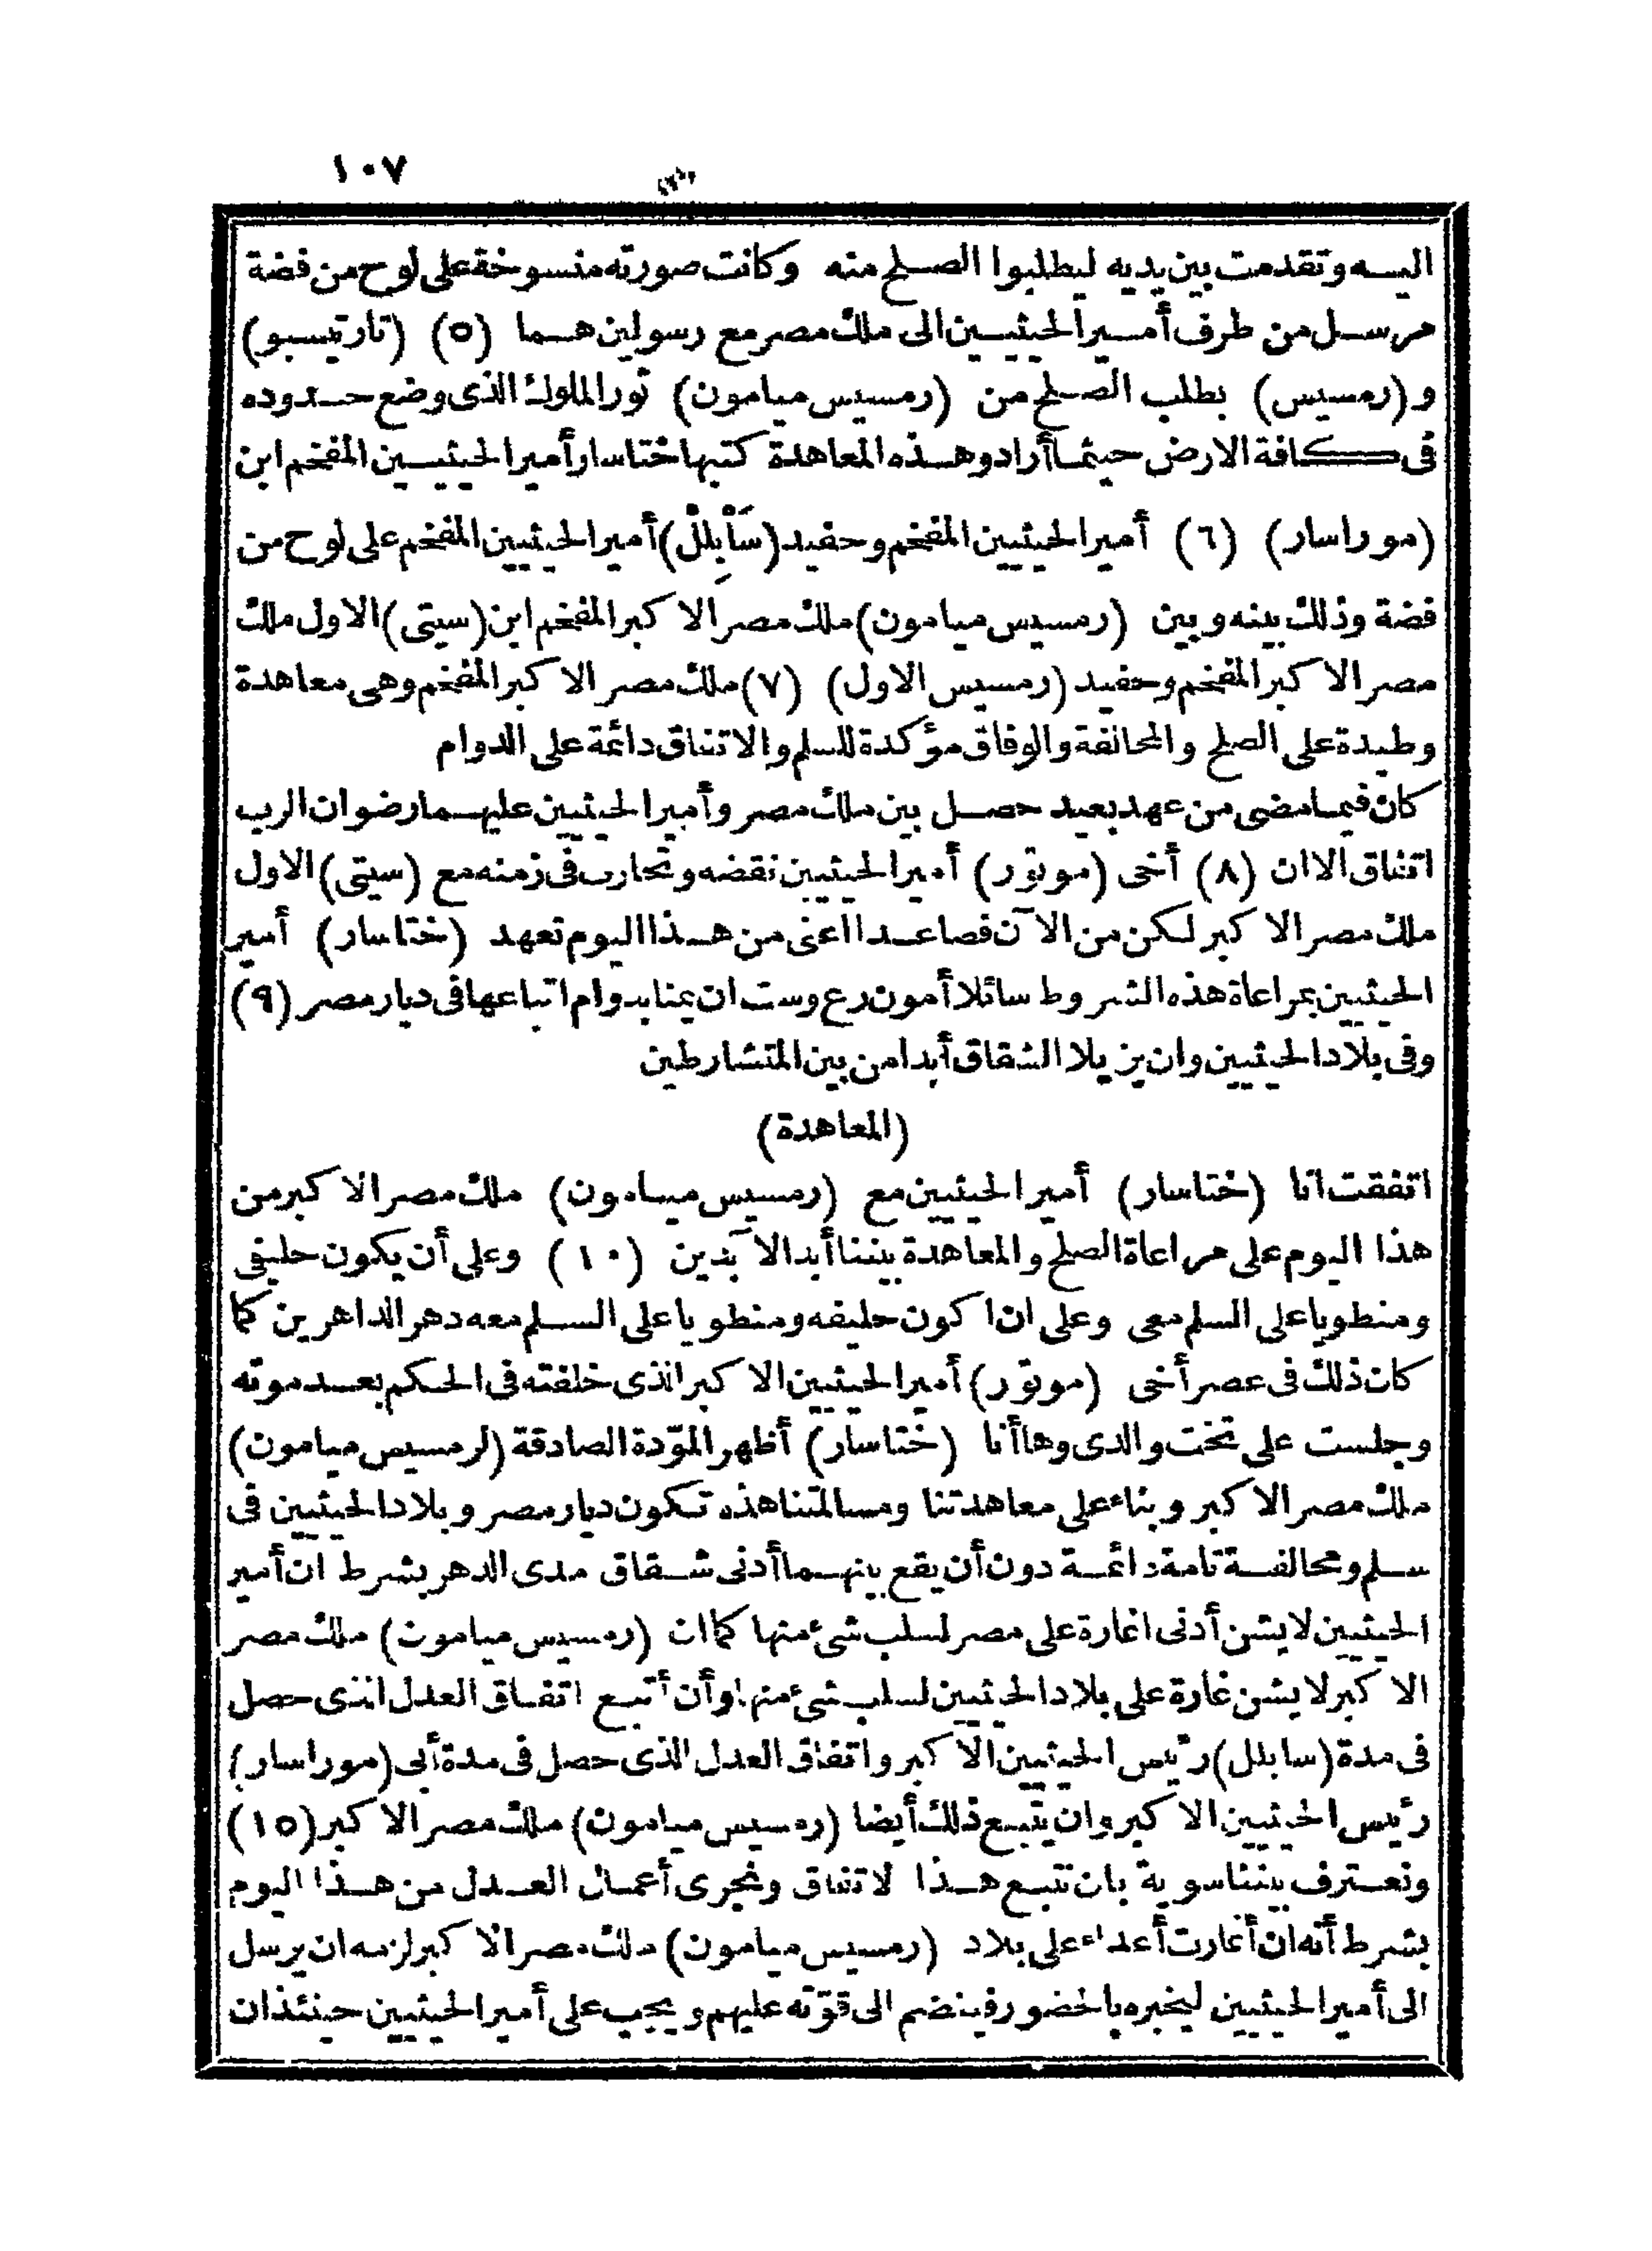 ١٠٧
اليه وتقدمت بين يديه ليطلبوا الصلح منه وكانت صورته منسوخة على لوح من فضة
مرسل من طرف أمير الحيثيين الى ملك مصر مع رسولين هما (٥) (تارتيسبو)
و(رمسيس) بطلب الصلح من (رمسيس ميامون) ثور الملوك الذى وضع حدوده
فى كافة الارض حيثما أراد وهذه المعاهدة كتبها ختاسار أمير الحيثيين المفخم ابن
(موراسار) (٦) أمير الحيثيين المفخم وحفيد (سَأْبِلِلْ) أمير الحيثيين المفخم على لوح من
فضة وذلك بينه وبين (رمسيس ميامون) ملك مصر الاكبر المفخم ابن (سيتى) الاول ملك
مصر الاكبر المفخم وحفيد (رمسيس الاول) (٧) ملك مصر الاكبر المفخم وهى معاهدة
وطيدة على الصلح والمحالفة والوفاق مؤكدة للسلم والاتفاق دائمة على الدوام
كان فيما مضى من عهد بعيد حصل بين ملك مصر وأمير الحيثيين عليهما رضوان الرب
اتفاق الا ان (٨) أخى (موتور) أمير الحيثيين نقضه وتحارب فى زمنه مع (سيتى) الاول
ملك مصر الاكبر لكن من الآن فصاعدا اعنى من هذا اليوم تعهد (ختاسار) أمير
الحيثيين بمراعاة هذه الشروط سائلا أمون رع وست ان يمنا بدوام اتباعها فى ديار مصر (٩)
وفى بلاد الحيثيين وان يزيلا الشقاق أبدا من بين المتشارطين
(المعاهدة)
اتفقت انا (ختاسار) أمير الحيثيين مع (رمسيس ميامون) ملك مصر الاكبر من
هذا اليوم على مراعاة الصلح والمعاهدة بيننا أبد الآبدين (١٠) وعلى أن يكون حليفى
ومنطويا على السلم معى وعلى ان اكون حليفه ومنطويا على السلم معه دهر الداهرين كما
كان ذلك فى عصر أخى (موتور) أمير الحيثيين الاكبر الذى خلفته فى الحكم بعد موته
وجلست على تخت والدى وها أنا (ختاسار) أظهر المودّة الصادقة (لرمسيس ميامون)
ملك مصر الاكبر وبناء على معاهدتنا ومسالمتنا هذه تكون ديار مصر وبلاد الحيثيين فى
سلم ومحالفة تامة دائمة دون أن يقع بينهما أدنى شقاق مدى الدهر بشرط ان أمير
الحيثيين لا يشن أدنى اغارة على مصر لسلب شئ منها كما ان (رمسيس ميامون) ملك مصر
الاكبر لا يشن غارة على بلاد الحيثيين لسلب شئ منها وأن أتبع اتفاق العدل الذى حصل
فى مدة (سابلل) رئيس الحيثيين الاكبر واتفاق العدل الذى حصل فى مدة أبى (موراسار)
رئيس الحيثيين الاكبر وان يتبع ذلك أيضا (رمسيس ميامون) ملك مصر الاكبر (١٥)
ونعترف بيننا سوية بان نتبع هذا لاتفاق ونجرى أعمال العدل من هذا اليوم
بشرط أنه ان أغارت أعداء على بلاد (رمسيس ميامون) ملك مصر الاكبر لزمه ان يرسل
الى أمير الحيثيين ليخبره بالحضور فينضم الى قوّته عليهم ويجب على أمير الحيثيين حينئذ ان